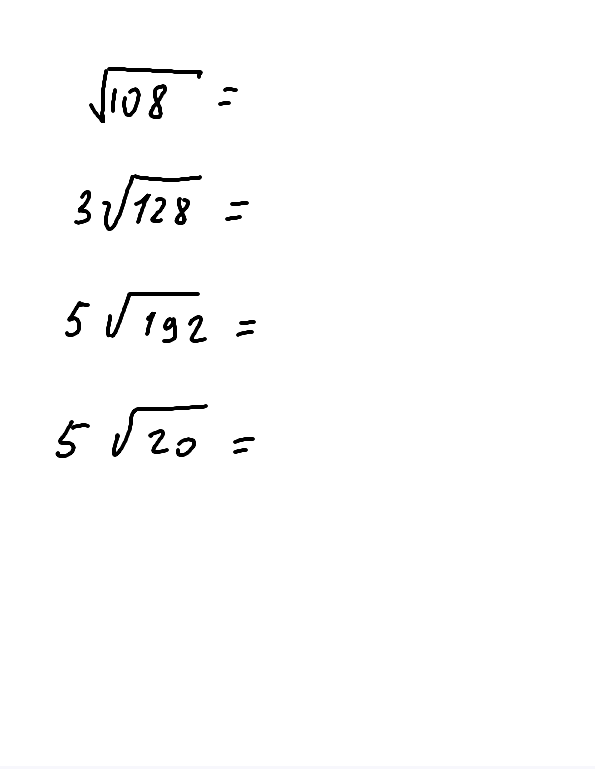 √108 =
3√128 =
5 √192 =
5 √20 =